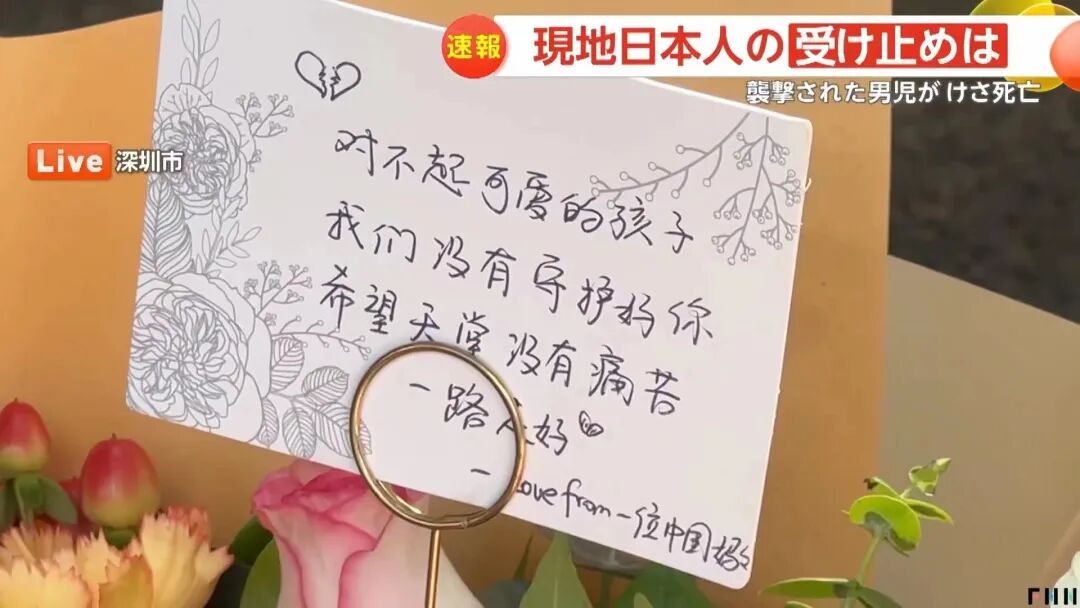 速報
現地日本人の受け止めは
襲撃された男児が けさ死亡
Live 深圳市
对不起可爱的孩子
我们没有守护好你
希望天堂没有痛苦
一路走好
— Love from 一位中国妈
FNN